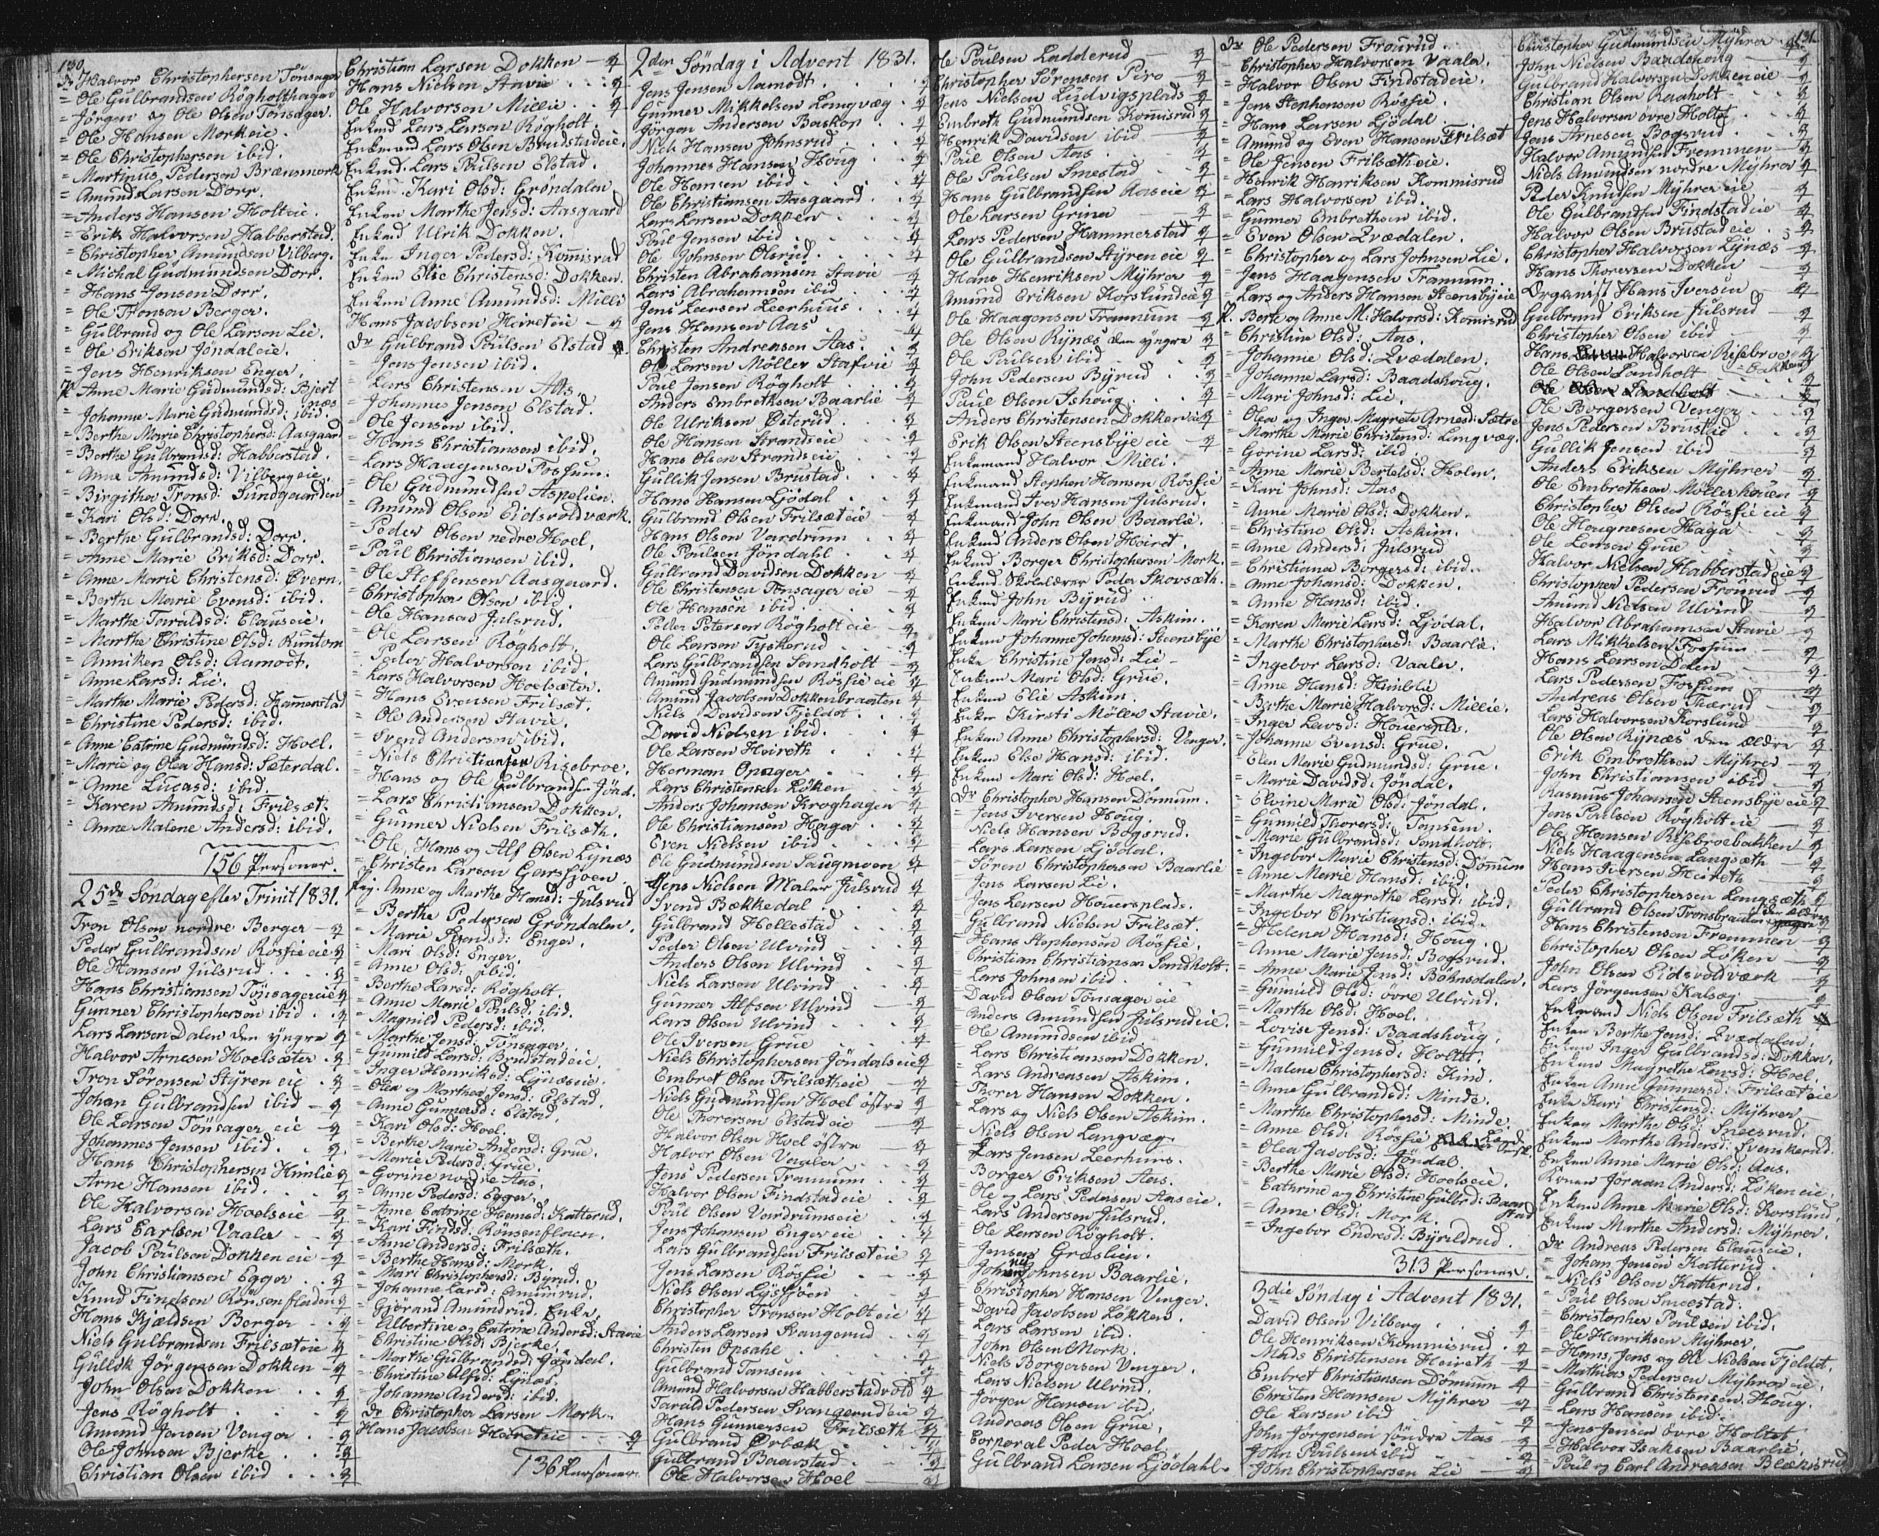 130.
Dr Halvor Christophersen Tönsager
= Ole Gulbrandsen Rögholthagen
= Jörgen og Ole Olsen Tönsager.
= Ole Hansen Morkeie.
= Ole Christophersen ibid.
= Martinus Pedersen Brænmork
= Amund Larsen Dorr.
= Anders Hansen Holteie.
= Erik Halvorsen Habberstad.
= Christopher Amundsen Vilberg.
= Michal Gudmundsen Dorr.
= Hans Jensen Dorr.
= Ole Tronsen Berger.
= Gulbrand og Ole Larsen Lie.
= Ole Eriksen Jöndaleie.
= Jens Henriksen Enger.
P. Anne Marie Gudmundsd: Bjert
næs
= Johanne Marie Gudmundsd: ibid.
= Berthe Marie Christophersd: Aasgaard
= Berthe Gulbrandsd: Habberstad.
= Anne Amundsd: Vilbergeie.
= Birgithe Tronsd: Sundgaarden
= Kari Olsd: Dorr.
= Berthe Gulbrandsd: Dorr.
= Anne Marie Eriksd: Dorr.
= Anne Marie Christensd: Evern.
= Berthe Marie Evensd: ibid.
= Marthe Toraldsd: Clauseie.
= Marthe Christine Olsd:
= Anniken Olsd: Aamodt.
= Anne Larsd: Lie.
= Marthe Marie Pedersd: Hamerstad
= Christine Pedersd: ibid.
= Anne Catrine Gudmundsd: Hoel.
= Marie og Olea Hansd: Sæterdal.
= Anne Lucasd: ibid.
= Karen Amundsd: Frilsæt.
= Anne Malene Andersd: ibid.
156 Personer.
25de Söndag efter Trinit 1831.
Tron Olsen nordre Berger - 4
Peder Gulbrandsen Rösfieeie 4
Ole Hansen Julsrud . . . 4
Hans Christiansen Tönsagereie 4
Gunner Christophersen ibid . . 4
Lars Larsen Dalen den yngre 4
Halvor Arnesen Hoelsæter . 4
Tron Sörensen Styren eie . 4
Johan Gulbrandsen ibid - 4
Ole Larsen Tönsager eie - 4
Johannes Jensen ibid . . 4
Hans Christophersen Himlie 4
Arne Hansen ibid. . . . 4
Ole Halvorsen Hoelseie - 4
Lars Carlsen Vaaler - - 4
Jacob Poulsen Dokken eie - 4
John Christiansen Egger . . 4
Knud Findsen Rönsenfladen 4
Hans Kjeldsen Berger . . 4
Niels Gulbrandsen Frilsæteie 4
Gullik Jörgensen Dokken 4
John Olsen Dokken . . . 4
Jens Rögholt . . . . 4
Amund Jensen Venger . . 4
Ole Johnsen Bjerke . . . 4
Christian Olsen ibid . . . 4
Christian Larsen Dokken - 4
Hans Nielsen Stavie . . . 4
Ole Halvorsen Millie . . . 4
Enkmd Lars Larsen Rögholt.
Enkemand Lars Olsen Brudstadeie.
Enkmd. Lars Paulsen Elstad.
Enken Kari Olsd: Gröndalen
Enken Marthe Jensd: Aasgaard
Enkmd Ulrik Dokken.
Enke Inger Pedersd: Komisrud
Enken Else Christensd: Dokken.
Enken Anne Amundsd: Milli
Hans Jacobsen Heireteie - 4
Dr Gulbrand Poulsen Elstad
= Jens Jensen ibid.
= Lars Christensen Aas
= Johannes Jensen Elstad.
= Ole Jensen ibid.
= Hans Christiansen ibid.
= Lars Haagensen Fossum.
= Ole Gudmundsen Aspelien.
= Amund Olsen Eidsvoldværk.
= Peder Olsen nedre Hoel.
= Paul Christiansen ibid.
= Ole Steffensen Aasgaard.
= Christopher Olsen ibid.
= Ole Hansen Julsrud.
= Ole Larsen Rögholt.
= Peder Halvorsen ibid.
= Lars Halvorsen Hoelsæter.
= Hans Evensen Frilsæt.
= Ole Andersen Stavie.
= Svend Andersen ibid.
= Niels Christiansen Risebroe.
= Hans og Ole Gulbrandsen Jönd.
= Lars Christiansen Dokken.
= Gunner Nielsen Frilsæth.
= Ole, Hans og Alf Olsen Lynæs
= Christen Larsen Garsjöen
Pig. Anne og Marthe Hansd: Julsrud
= Berthe Pedersen Gröndalen.
= Marie Svendsd: Enger.
= Mari Olsd: Enger.
= Anne Olsd: ibid.
= Berthe Larsd: Rögholt.
= Anne Marie Paulsd: ibid.
= Magnild Pedersd: ibid.
= Marthe Jensd: Tönsager.
= Gunild Larsd: Brudstadeie.
= Inger Henriksd: Lyndseie.
= Olea og Marthea Jensd: Elstad.
= Anne Gunnersd: Elstad.
= Kari Olsd: Hoel.
= Berthe Marie Andersd: Grue.
= Marie Pedersd: Grue.
= Gorine nordre Aas.
= Anne Pedersd: Egger.
= Anne Catrine Hansd: Katterud.
= Kari Findsd: Rönsenfloen.
= Anne Andersd: Frilsæth.
= Berthe Hansd: Mork.
= Mari Christophersd: Byrud.
= Johanne Larsd: Amundrud.
= Gjörand Amundrud. Enke.
= Albertine og Catrine Andersd: Stavie
= Christine Olsd: Bjerke.
= Marthe Gulbrandsd: Jöndal.
= Christine Alfsd: Lynæs.
= Johanne Andersd: ibid.
Dr Christopher Larsen Mork.
Hans Jacobsen Heireteie - - 4
136 Personer.
2den Söndag i Advent 1831.
Jens Jensen Aamodt . . . 4
Gunner Mikkelsen Langvæg . 4
Jörgen Andersen Baskop . . 4
Niels Hansen Johnsrud . . 4
Johannes Hansen Houg . . 4
Ole Hansen ibid . . . . 4
Ole Christiansen Aasgaard . . 4
Lars Larsen Dokken . . . 4
Paul Jensen ibid . . . . 4
Ole Johnsen Olsrud . . . 4
Christen Abrahamsen Stavie - 4
Lars Abrahamsen ibid . . 4
Jens Leersen Leerhuus . . 4
Jens Hansen Aas . . . 4
Christen Andreasen Aas . . 4
Ole Larsen Möller Stafvie 4
Paul Jensen Rögholt . . . 4
Anders Embretsen Baarlie - 4
Ole Ulriksen Österud . . . 4
Ole Hansen Strandseie . . 4
Hans Olsen Strandseie . . 4
Gullik Jensen Brustad . . 4
Hans Hansen Ljödal . . . 4
Gulbrand Olsen Frilsæteie . 4
Hans Olsen Vardrum . . 4
Ole Paulsen Jöndahl . . . 4
Gulbrand Davidsen Dokken - 4
Ole Christensen Tönsager eie - 4
Ole Hansen ibid . . . . 4
Peder Petersen Rögholt eie - 4
Ole Larsen Tyskerud . . 4
Lars Gulbrandsen Sandholt - 4
Amund Gudmundsen Rösfie eie 4
Amund Jacobsen Dokkenbraaten 4
Niels Davidsen Fjeldet . . 4
David Nielsen ibid . . . 4
Ole Larsen Heireth . . . 4
Herman Opager . . . 4
Lars Christensen Löken . . 4
Anders Johansen Kroghagen 4
Ole Christiansen Hager . . 4
Even Nielsen ibid . . . 4
Ole Gudmundsen Saugmoen 4
Jens Nielsen Maler Julsrud 4
Svend Bækkedal . . . 4
Gulbrand Hellestad . . . 4
Peder Olsen Ulvind . . . 4
Anders Olsen Ulvind . . . 4
Niels Larsen Ulvind . . . 4
Gunner Alfsen Ulvind - - 4
Lars Olsen Ulvind . . . 4
Ole Iversen Grue . . . 4
Niels Christophersen Jöndalseie 4
Embret Olsen Frilsætheie - 4
Niels Gudmundsen Hoel östre 4
Ole Thoresen Elstad eie - 4
Halvor Olsen Hoel östre - 4
Halvor Olsen Vaaler . . . 4
Jens Pedersen Tramum . . 4
Halvor Olsen Findstadeie . . 4
Paul Olsen Vardrumseie . . 4
Jens Johansen Engereie . . 4
Lars Gulbrandsen Frilsæt eie 4
Jens Larsen Rösfie . . . 4
Niels Olsen Lyssjöen . . 4
Christopher Tronsen Holt eie 4
Anders Larsen Svangerud . . 4
Christen Opsahl . . . . 4
Gulbrand Tansum . . . 4
Amund Halvorsen Habberstadvold 4
Tarald Pedersen Svangerud eie 4
Hans Gunnersen Frilsæth 4
Gulbrand Örbæk . . . 4
Gulbrand Baarstad . . . 4
Ole Halvorsen Hoel 4
Ole Paulsen Ladderud - 4
Christopher Sörensen Piro - 4
Jens Nielsen Ludvigsplads - 4
Embreth Gudmundsen Komisrud 4
Henrik Davidsen ibid - 4
Paul Olsen Aas . . . 4
Ole Paulsen Smestad . . 4
Hans Gulbrandsen Aaseie 4
Ole Larsen Grina - 4
Lars Pedersen Hammerstad 4
Ole Gulbrandsen Styren eie 4
Hans Henriksen Myhrer . 4
Amund Eriksen Korslundeie 4
Ole Haagensen Trammum - 4
Ole Olsen Rynæs den yngre 4
Ole Paulsen ibid . . . 4
John Pedersen Byrud . . 4
Paul Olsen Ishoug . . 4
Anders Christensen Dokken eie 4
Erik Olsen Steensbye eie - 4
Enkemand Halvor Milli.
Enkmand Stephen Hansen Rösfie
Enkemand Iver Hansen Julsrud.
Enkemand John Olsen Baarlie.
Enkmd Anders Olsen Heiret.
Enkmd Borger Christophersen Mork.
Enkmd. Skolelærer Peder Skovsæth.
Enkmd John Byrud.
Enken Mari Christensd: Askim.
Enken Johanne Johansd: Steensbye
Enken Christine Jensd: Lie.
Enken Mari Olsd: Grue.
Enken Elie Askim.
Enken Kirsti Möller Stavie.
Enken Anne Christophersd: Venger.
Enken Else Hansd: ibid.
Enken Mari Olsd: Hoel.
Dr Christopher Hansen Dömnum.
= Jens Iversen Houg.
= Niels Hansen Bogsrud.
= Lars Larsen Ljödal.
= Sören Christophersen Baarlie
= Jens Larsen Lie.
= Jens Larsen Houersplads.
= Gulbrand Nielsen Frilsæt.
= Hans Stephensen Rösfie.
= Christian Christiansen Sandholt.
= Lars Johnsen ibid.
= David Olsen Tönsager eie
= Anders Amundsen Julsrudeie.
= Ole Amundsen ibid.
= Lars Christiansen Dokken.
= Lars Andreasen Askim.
= Borer Hansen Dokken.
= Lars og Niels Olsen Askim.
= Niels Olsen Langvæg.
= Lars Jensen Leerhuus.
= Borger Eriksen Aas.
= Ole og Lars Pedersen Aaseie.
= Lars Andersen Julsrud.
= Ole Larsen Rögholt.
= Jensen Græslien.
= John Johnsen Baarlie.
= Christopher Hansen Venger.
= David Jacobsen Lökken.
= Lars Larsen ibid.
= John Olsen Mork.
= Niels Borgersen Venger.
= Lars Nielsen Ulvind.
= Jörgen Hansen ibid.
= Andreas Olsen Grue.
= Corporal Peder Hoel
= Gulbrand Larsen Ljödahl.
Dr Ole Pedersen Frourud.
= Christopher Halvorsen Vaaler.
= Halvor Olsen Findstadeie.
= Jens Stephensen Rösfie.
= Hans Larsen Ljödal.
= Amund og Even Hansen Frilsæt
= Ole Jensen Frilsætheie.
= Henrik Henriksen Kommisrud
= Lars Halvorsen ibid.
= Gunner Embrethsen ibid.
= Even Olsen Qvædalen.
= Christopher og Lars Johnsen Lie.
= Jens Haagensen Trammum.
= Lars og Anders Hansen Steensbyeie
P. Berte og Anne M: Halvorsd: Komisrud
= Christine Olsd: Aas.
= Johanne Olsd: Qvædalen.
= Johanne Larsd: Baadshoug.
= Mari Johnsd: Lie.
= Olea og Inger Magrete Arnesd: Sætre
= Marthe Marie Christensd: Langvæg
= Gorine Larsd: ibid.
= Anne Marie Bertelsd: Holm.
= Kari Johnsd: Aas
= Anne Marie Olsd: Dokken.
= Christine Olsd: Askim.
= Anne Andersd: Julsrud
= Christiana Borgersd: ibid.
= Anne Johansd: Dokken.
= Anne Hansd: ibid.
= Karen Marie Larsd: Ljödal.
= Marthe Christophersd: Baarlie.
= Ingebor Larsd: Vaaler.
= Anne Hansd: Himblie
= Birthe Marie Halvorsd: Millie.
= Inger Larsd: Houerspld.
= Johanne Evensd: Grue.
= Elen Marie Gudmundsd: Grue.
= Marie Davidsd: Jöndal.
= Elvine Marie Olsd: Jöndal.
= Gunnild Thorersd: Tansum.
= Marie Gulbrandsd: Sandholt.
= Ingebor Marie Christensd: Dömnum
= Anne Marie Hansd: ibid.
= Marthe Magrethe Larsd: ibid.
= Ingebor Christiansd: ibid.
= Helena Hansd: Houg.
= Anne Marie Jensd: Bogsrud.
= Anne Marie Jensd: Böhnsdalen.
= Gunnild Olsd: övre Ulvind.
= Marthe Olsd: Hoel.
= Lovise Jensd: Baadshoug.
= Gunnild Jensd: Holtet.
= Malene Christophersd: Hind.
= Anne Gulbrandsd: Minde.
= Marthe Christophersd: Minde.
= Anne Olsd: Rösfie
= Olea Jacobsd: Jöndal
= Berthe Marie Olsd: Hoelseie.
= Cathrine og Christine Gulbrd: Baar
stad
= Anne Olsd: Mork
= Ingebor Endresd: Byrildrud.
313 Personer.
3die Söndag i Advent 1831.
David Olsen Vilberg . . . 4
Ole Henriksen Kommisrud . 4
Mads Christensen Heireth - 4
Embret Christiansen Dömnum 4
Christen Hansen Myhrer . 4
Ole Larsen ibid - 4
John Jörgensen söndre Aas - 4
John Paulsen ibid - 4
John Christophersen Lie - 4
131.
Christopher Gudmundsen Myhrer 4
John Nielsen Baardshoug - 4
Gulbrand Halvorsen Dokken eie - 4
Christian Olsen Raaholt - 4
Jens Halvorsen övre Holtet . 4
Jens Arnesen Bogsrud . . 4
Halvor Amundsen Fremmen - 4
Niels Amundsen nordre Myhrer 4
Peder Knudsen Myhrer eie 4
Ole Gulbrandsen Findstad eie - 4
Halvor Olsen Brustad eie - 4
Christopher Halvorsen Lynæs 4
Hans Thorersen Dokken - 4
Organist Hans Iversen - 4
Gulbrand Eriksen Julsrud - 4
Christopher Olsen ibid 4
Hans Halvorsen Risebroe 4
Ole Olsen Sandholt - bakken 4
Ole Olsen Sandholt . . . 4
Ole Borgersen Venger 4
Jens Pedersen Brustad 4
Gullik Jensen ibid 4
Anders Eriksen Myhrer - 4
Ole Embrethsen Möllerhouen 4
Christopher Olsen Rösfie eie 4
Ole Hougnesen Haga 4
Ole Larsen Grue . . . 4
Halvor Nielsen Habberstad eie 4
Christopher Pedersen Frourud - 4
Amund Nielsen Ulvind - 4
Halvor Abrahamsen Stavie - 4
Lars Mikkelsen Fossum - 4
Hans Larsen Dalen - 4
Lars Pedersen Fossum - 4
Andreas Olsen Thærud - 4
Lars Halvorsen Korslund 4
Ole Olsen Rynæs den ældre 4
Erik Embrethsen Myhrer - 4
John Christiansen ibid - 4
Rasmus Johansen Steensbye eie 4
Jens Paulsen Rögholt eie - 4
Ole Hansen Risebroebakken 4
Niels Haagensen Langsæth 4
Hans Iversen Heireth - 4
Peder Christophersen Langsæth 4
Gulbrand Olsen Tronsbraaten den ældre
Hans Christensen Fremmen - 4
Christopher Olsen Löken - 4
John Olsen Eidsvoldværk 4
Lars Jörgensen Kalseg . 4
Enkemand Niels Olsen Frilsæth
Enken Berthe Jensd: Qvædalen,
Enken Inger Gulbrandsd: Dokken,
Enken Magrethe Larsd: Hoel
Enken Anne Gunnersd: Frilsæt eie
Enke Kari Christensd: Myhrer
Enken Marthe Olsd: Sneesrud.
Enken Marthe Andersd: Svenskerud.
Enken Anne Marie Olsd: Aas.
Konen Joraan Andersd: Löken eie.
Enken Anne Marie Olsd: Korslund
Enken Marthe Andersd: Myhrer.
Dr Andreas Pedersen Clauseie.
= Johan Jensen Katterud.
= Niels Olsen Katterud.
= Paul Olsen Smeestad.
= Christopher Paulsen ibid.
= Ole Henriksen Myhrer.
= Hans, Jens og Ole Nielsen Fjeldet.
= Mathias Pedersen Myhrer eie.
= Gulbrand Christensen Houg.
= Lars Hansen ibid.
= Jens Jensen övre Holtet.
= Halvor Isaksen Baarlie.
= Paul og Carl Andreasen Blækisrud